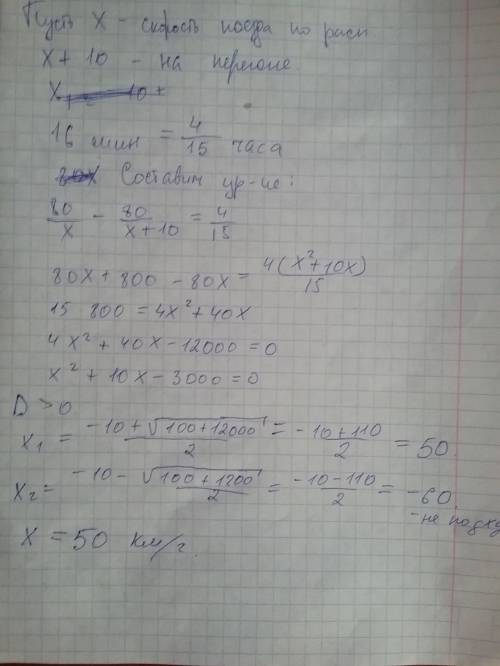 Пусть x - скорость поезда по расп
x + 10 - на перегоне
16 мин = 4/15 часа
Составим ур-ие:
80/x - 80/(x+10) = 4/15
80x + 800 - 80x = 4(x²+10x)/15
15 800 = 4x² + 40x
4x² + 40x - 12000 = 0
x² + 10x - 3000 = 0
D > 0
x₁ = (-10 + √(100+12000))/2 = (-10+110)/2 = 50
x₂ = (-10 - √(100+1200))/2 = (-10-110)/2 = -60
- не подхо
x = 50 км/г.